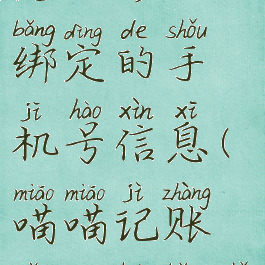 bǎng dìng de shǒu
绑定的手
jī hào xìn xī
机号信息(
miāo miāo jì zhàng
喵喵记账